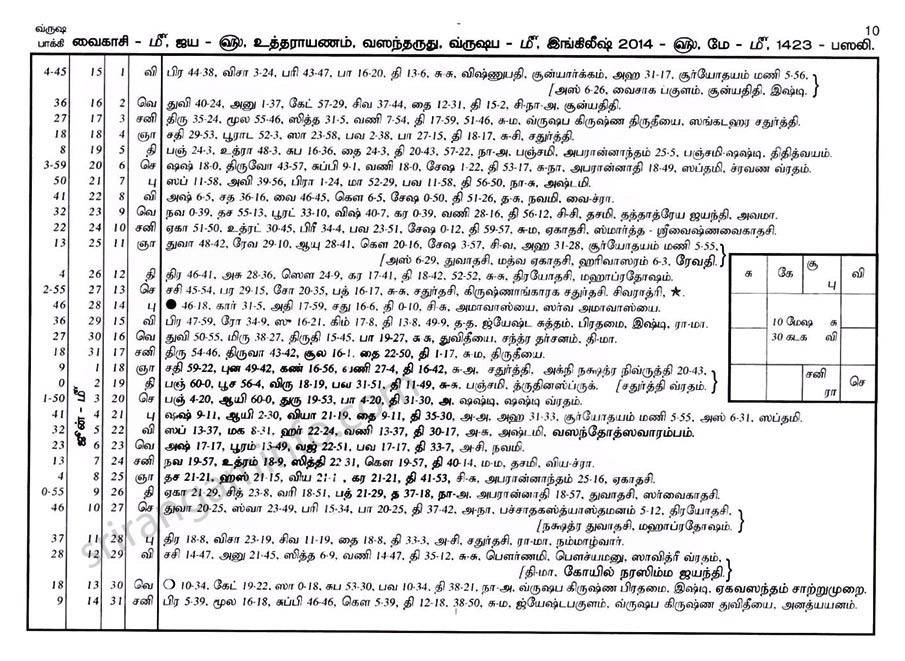 வ்ருஷ
பாக்கி வைகாசி - மீ, ஜய - ௵, உத்தராயணம், வஸந்தருது, வ்ருஷப - மீ, இங்கிலீஷ் 2014 - ௵, மே - மீ, 1423 - பஸலி.
10
4-45 15 1 வி பிர 44-38, விசா 3-24, பரி 43-47, பா 16-20, தி 13-6, சு-சு, விஷ்ணுபதி, சூன்யார்க்கம், அஹ 31-17, சூர்யோதயம் மணி 5-56,
[அஸ் 6-26, வைசாக ப்குளம், சூன்யதிதி, இஷ்டி.
36 16 2 வெ துவி 40-24, அனு 1-37, கேட் 57-29, சிவ 37-44, தை 12-31, தி 15-2, சி-நா-அ, சூன்யதிதி.
27 17 3 சனி திரு 35-24, மூல 55-46, ஸித்த 31-5, வணி 7-54, தி 17-59, 51-46, சு-ம, வ்ருஷப கிருஷ்ண திருதீயை, ஸங்கடஹர சதுர்த்தி.
18 18 4 ஞா சதி 29-53, பூராட 52-3, ஸா 23-58, பவ 2-38, பா 27-15, தி 18-17, சு-சி, சதுர்த்தி.
8 19 5 தி பஞ் 24-3, உத்ரா 48-3, சுப 16-36, தை 24-3, தி 20-43, 57-22, நா-அ, பஞ்சமி, அபரான்னாந்தம் 25-5, பஞ்சமி-ஷஷ்டி, திதித்வயம்.
3-59 20 6 செ ஷஷ் 18-0, திருவோ 43-57, சுப்பி 9-1, வணி 18-0, சேஷ 1-22, தி 53-17, சு-நா, அபரான்னாதி 18-49, ஸப்தமி, ச்ரவண வ்ரதம்.
50 21 7 பு ஸப் 11-58, அவி 39-56, பிரா 1-24, மா 52-29, பவ 11-58, தி 56-50, நா-சு, அஷ்டமி.
41 22 8 வி அஷ் 6-5, சத 36-16, வை 46-45, கௌ 6-5, சேஷ 0-50, தி 51-26, த-சு, நவமி, வை-ச்ரா.
32 23 9 வெ நவ 0-39, தச 55-13, பூரட் 33-10, விஷ் 40-7, கர 0-39, வணி 28-16, தி 56-12, சி-சி, தசமி, தத்தாத்ரேய ஜயந்தி, அவமா.
22 24 10 சனி ஏகா 51-50, உத்ரட் 30-45, பிரீ 34-4, பவ 23-51, சேஷ 0-12, தி 59-57, சு-ம, ஏகாதசி, ஸ்மார்த்த - ஸ்ரீவைஷ்ணவைகாதசி.
13 25 11 ஞா துவா 48-42, ரேவ 29-10, ஆயு 28-41, கௌ 20-16, சேஷ 3-57, சி-வ, அஹ 31-28, சூர்யோதயம் மணி 5-55,
[அஸ் 6-29, துவாதசி, மத்வ ஏகாதசி, ஹரிவாஸரம் 6-3, ரேவதி.
4 26 12 தி திர 46-41, அசு 28-36, ஸௌ 24-9, கர 17-41, தி 18-42, 52-52, சு-சு, திரயோதசி, மஹாப்ரதோஷம்.
2-55 27 13 செ சசி 45-54, பர 29-15, சோ 20-35, பத் 16-17, சு-சு, சதுர்தசி, கிருஷ்ணாங்காரக சதுர்தசி, சிவராத்ரி, ★.
46 28 14 பு ● 46-18, கார் 31-5, அதி 17-59, சது 16-6, தி 0-10, சி-சு, அமாவாஸ்யை, ஸர்வ அமாவாஸ்யை.
36 29 15 வி பிர 47-59, ரோ 34-9, ஸு 16-21, கிம் 17-8, தி 13-8, 49-9, த-த, ஜ்யேஷ்ட சுத்தம், பிரதமை, இஷ்டி, ரா-மா.
27 30 16 வெ துவி 50-55, மிரு 38-27, திருதி 15-45, பா 19-27, சு-சு, துவிதீயை, சந்த்ர தர்சனம், தி-மா.
18 31 17 சனி திரு 54-46, திருவா 43-42, சூல 16-1, தை 22-50, தி 1-17, சு-ம, திருதீயை.
9 1 18 ஞா சதி 59-22, புன 49-42, கண் 16-56, வணி 27-4, தி 16-42, சு-அ, சதுர்த்தி, அக்நி நக்ஷத்ர நிவ்ருத்தி 20-43,
0 2 19 தி பஞ் 60-0, பூச 56-4, விரு 18-19, பவ 31-51, தி 11-49, சு-சு, பஞ்சமி, த்ருதினஸ்ப்ருக். [சதுர்த்தி வ்ரதம்.
ஜூன் - மீ
1-50 3 20 செ பஞ் 4-20, ஆயி 60-0, துரு 19-53, பா 4-20, தி 31-30, அ, ஷஷ்டி, ஷஷ்டி வ்ரதம்.
41 4 21 பு ஷஷ் 9-11, ஆயி 2-30, வியா 21-19, தை 9-11, தி 35-30, அ-அ, அஹ 31-33, சூர்யோதயம் மணி 5-55, அஸ் 6-31, ஸப்தமி.
32 5 22 வி ஸப் 13-37, மக 8-31, ஹர் 22-24, வணி 13-37, தி 30-17, அ-சு, அஷ்டமி, வஸந்தோத்ஸவாரம்பம்.
23 6 23 வெ அஷ் 17-17, பூரம் 13-49, வஜ் 22-51, பவ 17-17, தி 33-7, அ-சி, நவமி.
13 7 24 சனி நவ 19-57, உத்ரம் 18-9, ஸித்தி 22-31, கௌ 19-57, தி 40-14, ம-ம, தசமி, விய-ச்ரா.
4 8 25 ஞா தச 21-21, ஹஸ் 21-15, விய 21-1, கர 21-21, தி 41-53, சி-சு, அபரான்னாந்தம் 25-16, ஏகாதசி.
0-55 9 26 தி ஏகா 21-29, சித் 23-8, வரி 18-51, பத் 21-29, த 37-18, நா-அ, அபரான்னாதி 18-57, துவாதசி, ஸர்வைகாதசி.
46 10 27 செ துவா 20-25, ஸ்வா 23-49, பரி 15-34, பா 20-25, தி 37-42, அ-நா, பச்சாதகஸ்த்யாஸ்தமனம் 5-12, திரயோதசி,
[நக்ஷத்ர துவாதசி, மஹாப்ரதோஷம்.
37 11 28 பு திர 18-8, விசா 23-19, சிவ 11-19, தை 18-8, தி 33-3, அ-சி, சதுர்தசி, ரா-மா, நம்மாழ்வார்.
28 12 29 வி சசி 14-47, அனு 21-45, ஸித்த 6-9, வணி 14-47, தி 35-12, சு-சு, பௌர்ணமி, பௌச்யமனு, ஸாவித்ரீ வ்ரதம்,
[தி-மா, கோயில் நரஸிம்ம ஜயந்தி.
18 13 30 வெ ○ 10-34, கேட் 19-22, ஸா 0-18, சுப 53-30, பவ 10-34, தி 38-21, நா-அ, வ்ருஷப கிருஷ்ண பிரதமை, இஷ்டி, ஏகவஸந்தம் சாற்றுமுறை.
9 14 31 சனி பிர 5-39, மூல 16-18, சுப்பி 46-46, கௌ 5-39, தி 12-18, 38-50, சு-ம, ஜ்யேஷ்டபகுளம், வ்ருஷப கிருஷ்ண துவிதீயை, அனத்யயனம்.
சு கே சூ பு வி
10 மேஷ சு
30 கடக வி
சனி ரா செ
srirangaminfo.com